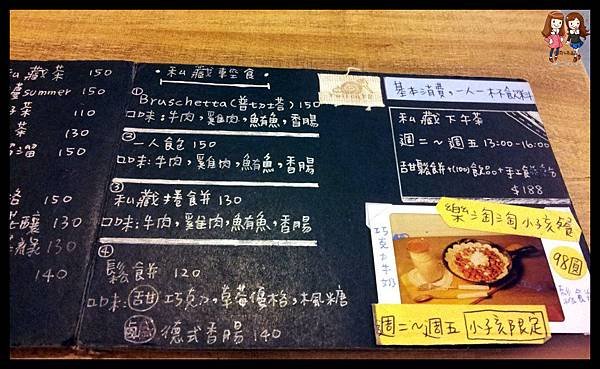 私藏茶 150
summer 150
茶 110
茶 130
150
150
釀 130
130
140
私藏輕食
① Bruschetta(普切塔) 150
口味:牛肉,雞肉,鮪魚,香腸
② 一人食包 150
口味:牛肉,雞肉,鮪魚,香腸
③ 私藏捲食餅 130
口味:牛肉,雞肉,鮪魚,香腸
④ 鬆食餅 120
口味:甜 巧克力,草莓優格,楓糖
鹹 德式香腸 140
基本消費,一人一杯飲料
私藏下午茶
週二~週五 13:00-16:00
甜鬆餅+(100)飲品+手工餅
$188
樂淘淘小孩餐
98圓
巧克力牛奶
週二~週五 小孩限定